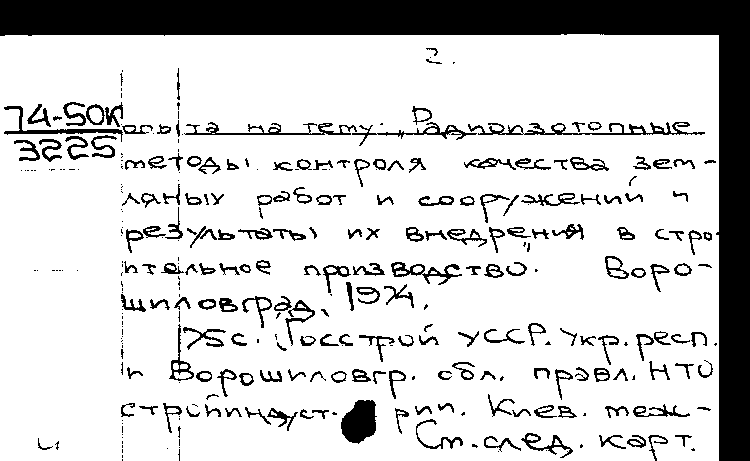 2.
74-50К опыта на тему: „Радиоизотопные
3225
методы контроля качества зем-
ляных работ и сооружений и
результаты их внедрения в стро-
ительное производство". Воро-
шиловград, 1974.
75 с. (Госстрой УССР. Укр. респ.
и Ворошиловгр. обл. правл. НТО
стройиндуст. рии. Киев. меж-
См. след. карт.